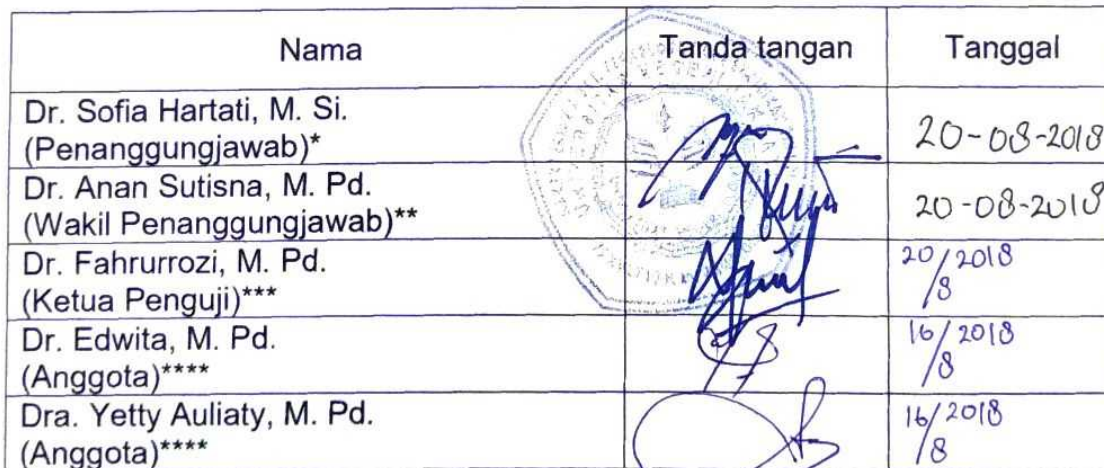 Nama Tanda tangan Tanggal
Dr. Sofia Hartati, M. Si.
(Penanggungjawab)* 20-08-2018
Dr. Anan Sutisna, M. Pd.
(Wakil Penanggungjawab)** 20-08-2018
Dr. Fahrurrozi, M. Pd. 20/2018
(Ketua Penguji)*** /8
Dr. Edwita, M. Pd. 16/2018
(Anggota)**** /8
Dra. Yetty Auliaty, M. Pd. 16/2018
(Anggota)**** /8